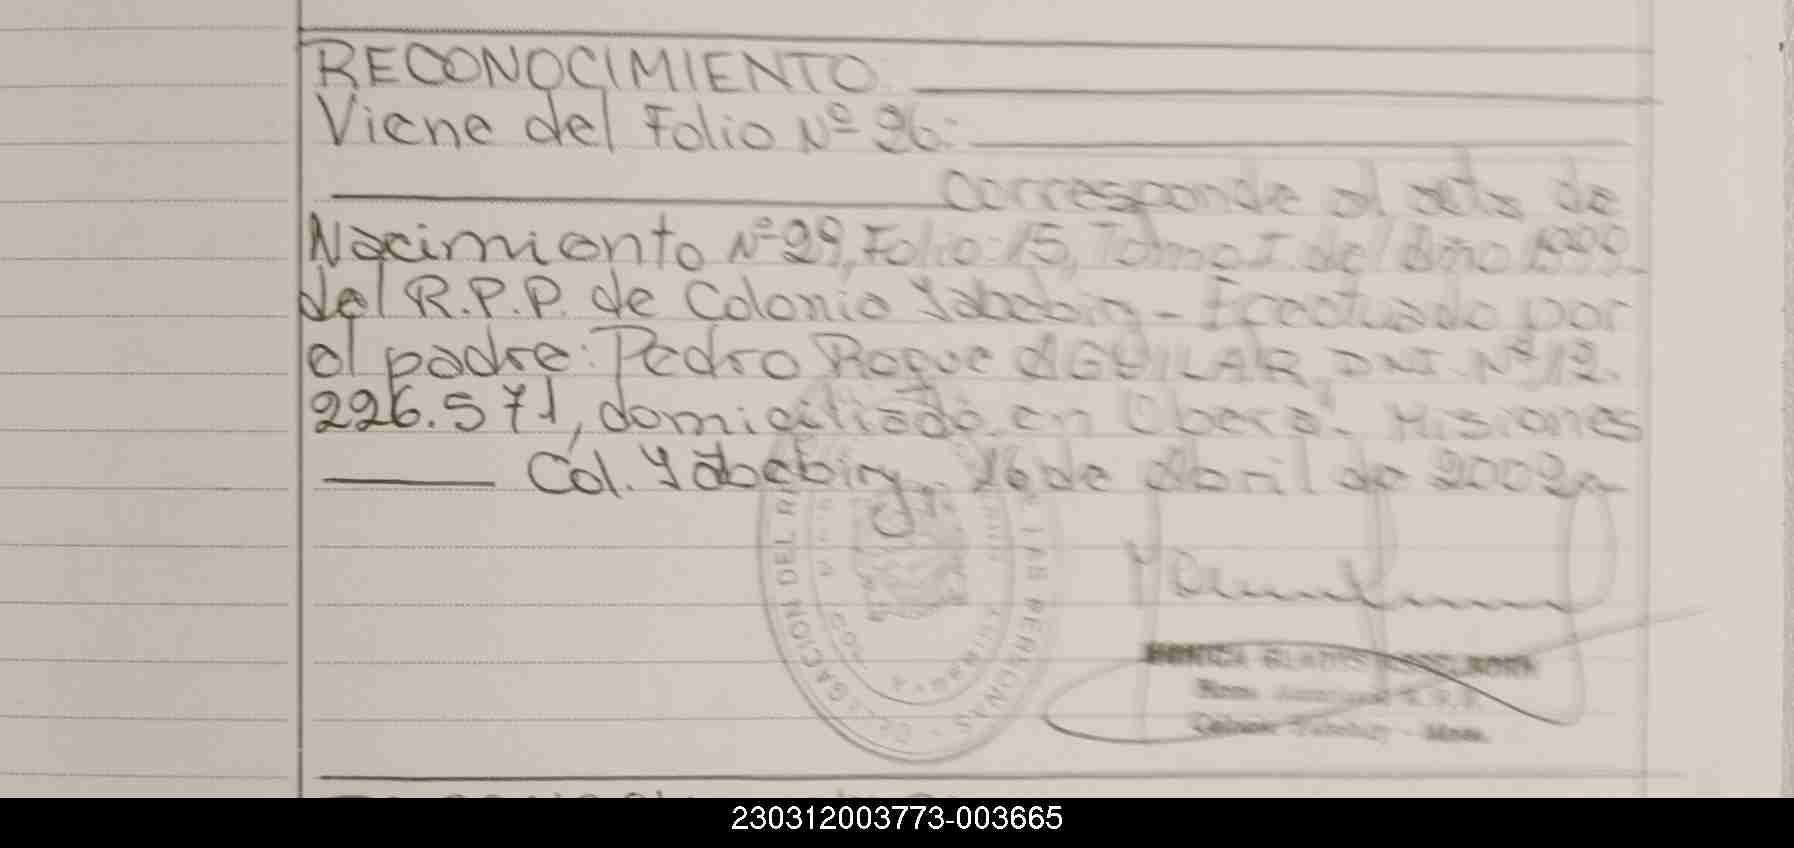 RECONOCIMIENTO
Viene del Folio Nº 26:
Corresponde al acta de
Nacimiento Nº 29, Folio: 15, Tomo I. del Año
del R.P.P. de Colonia Yabebiry - Efectuado por
el padre: Pedro Roque AGUILAR, DNI. Nº 12.
226.571, domiciliado en Oberá - Misiones
Col. Yabebiry, 26 de Abril de 2002
DELEGACION DEL LAS PERSONAS
MONICA GLADYS
230312003773-003665